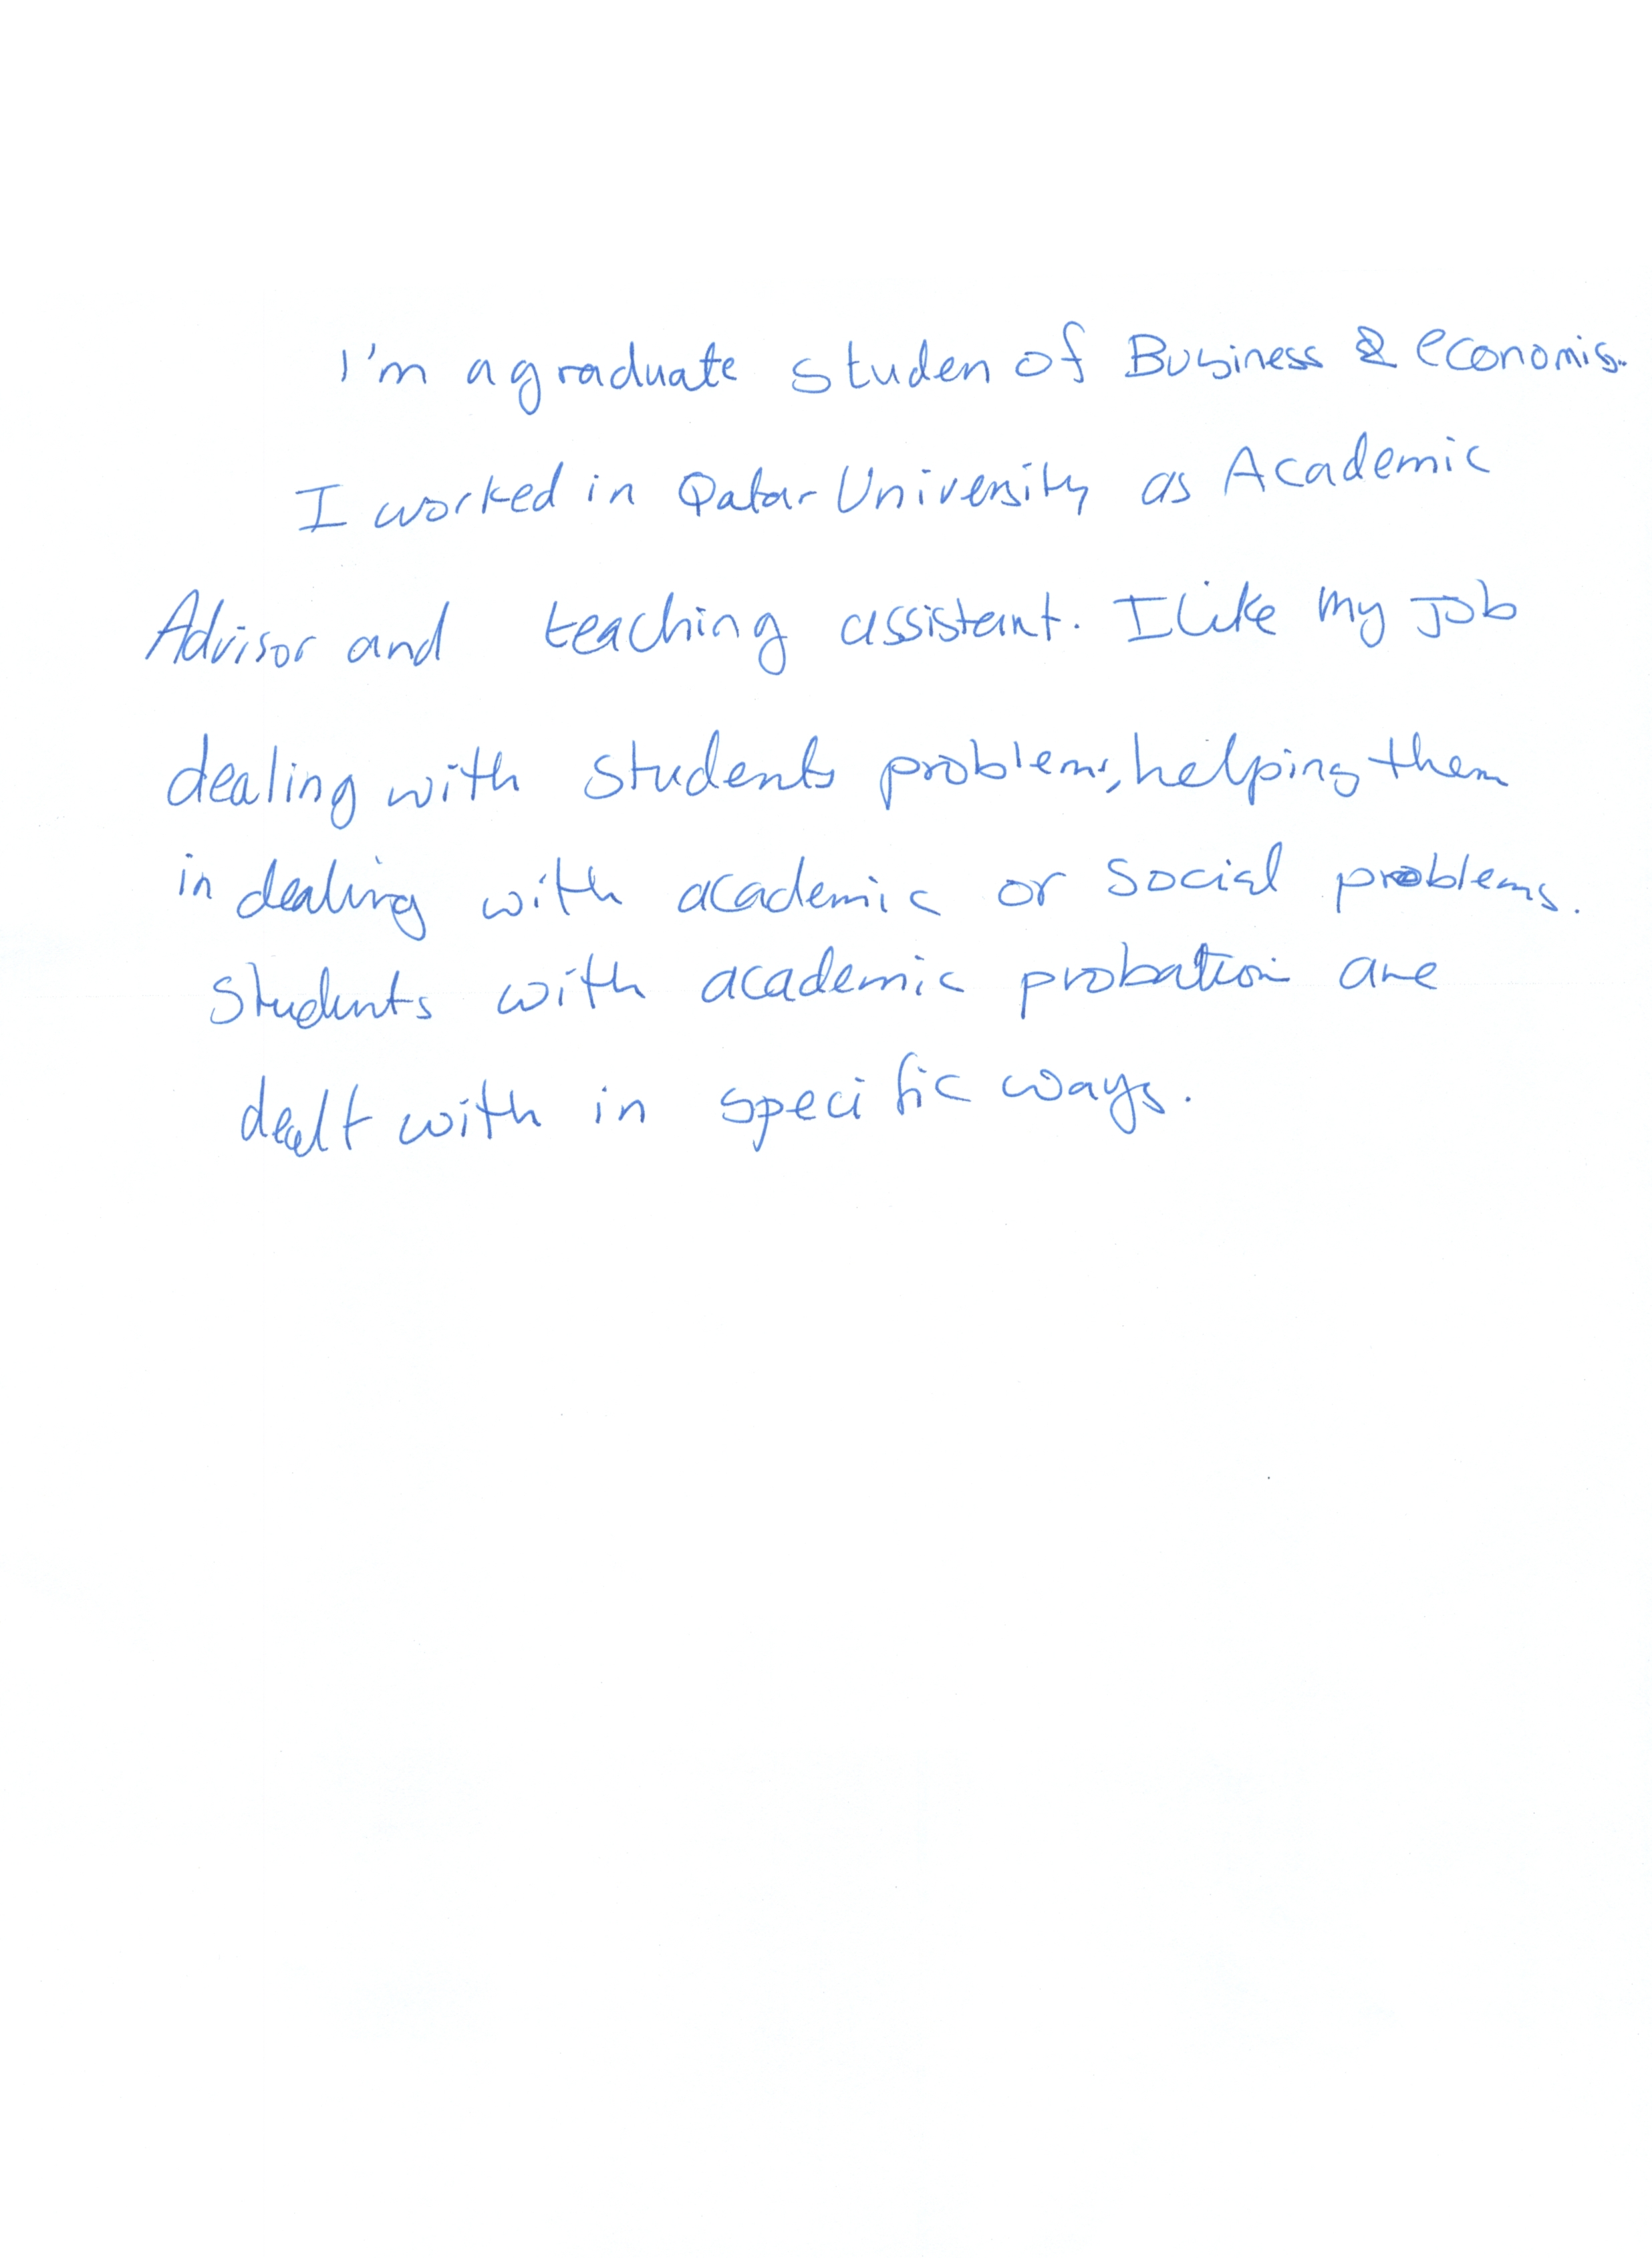 I'm a graduate studen of Business & economis.
I worked in Qatar University as Academic
Advisor and teaching assistant. I like my job
dealing with students problems, helping them
in dealing with academic or social problems.
students with academic probation are
dealt with in specific ways.